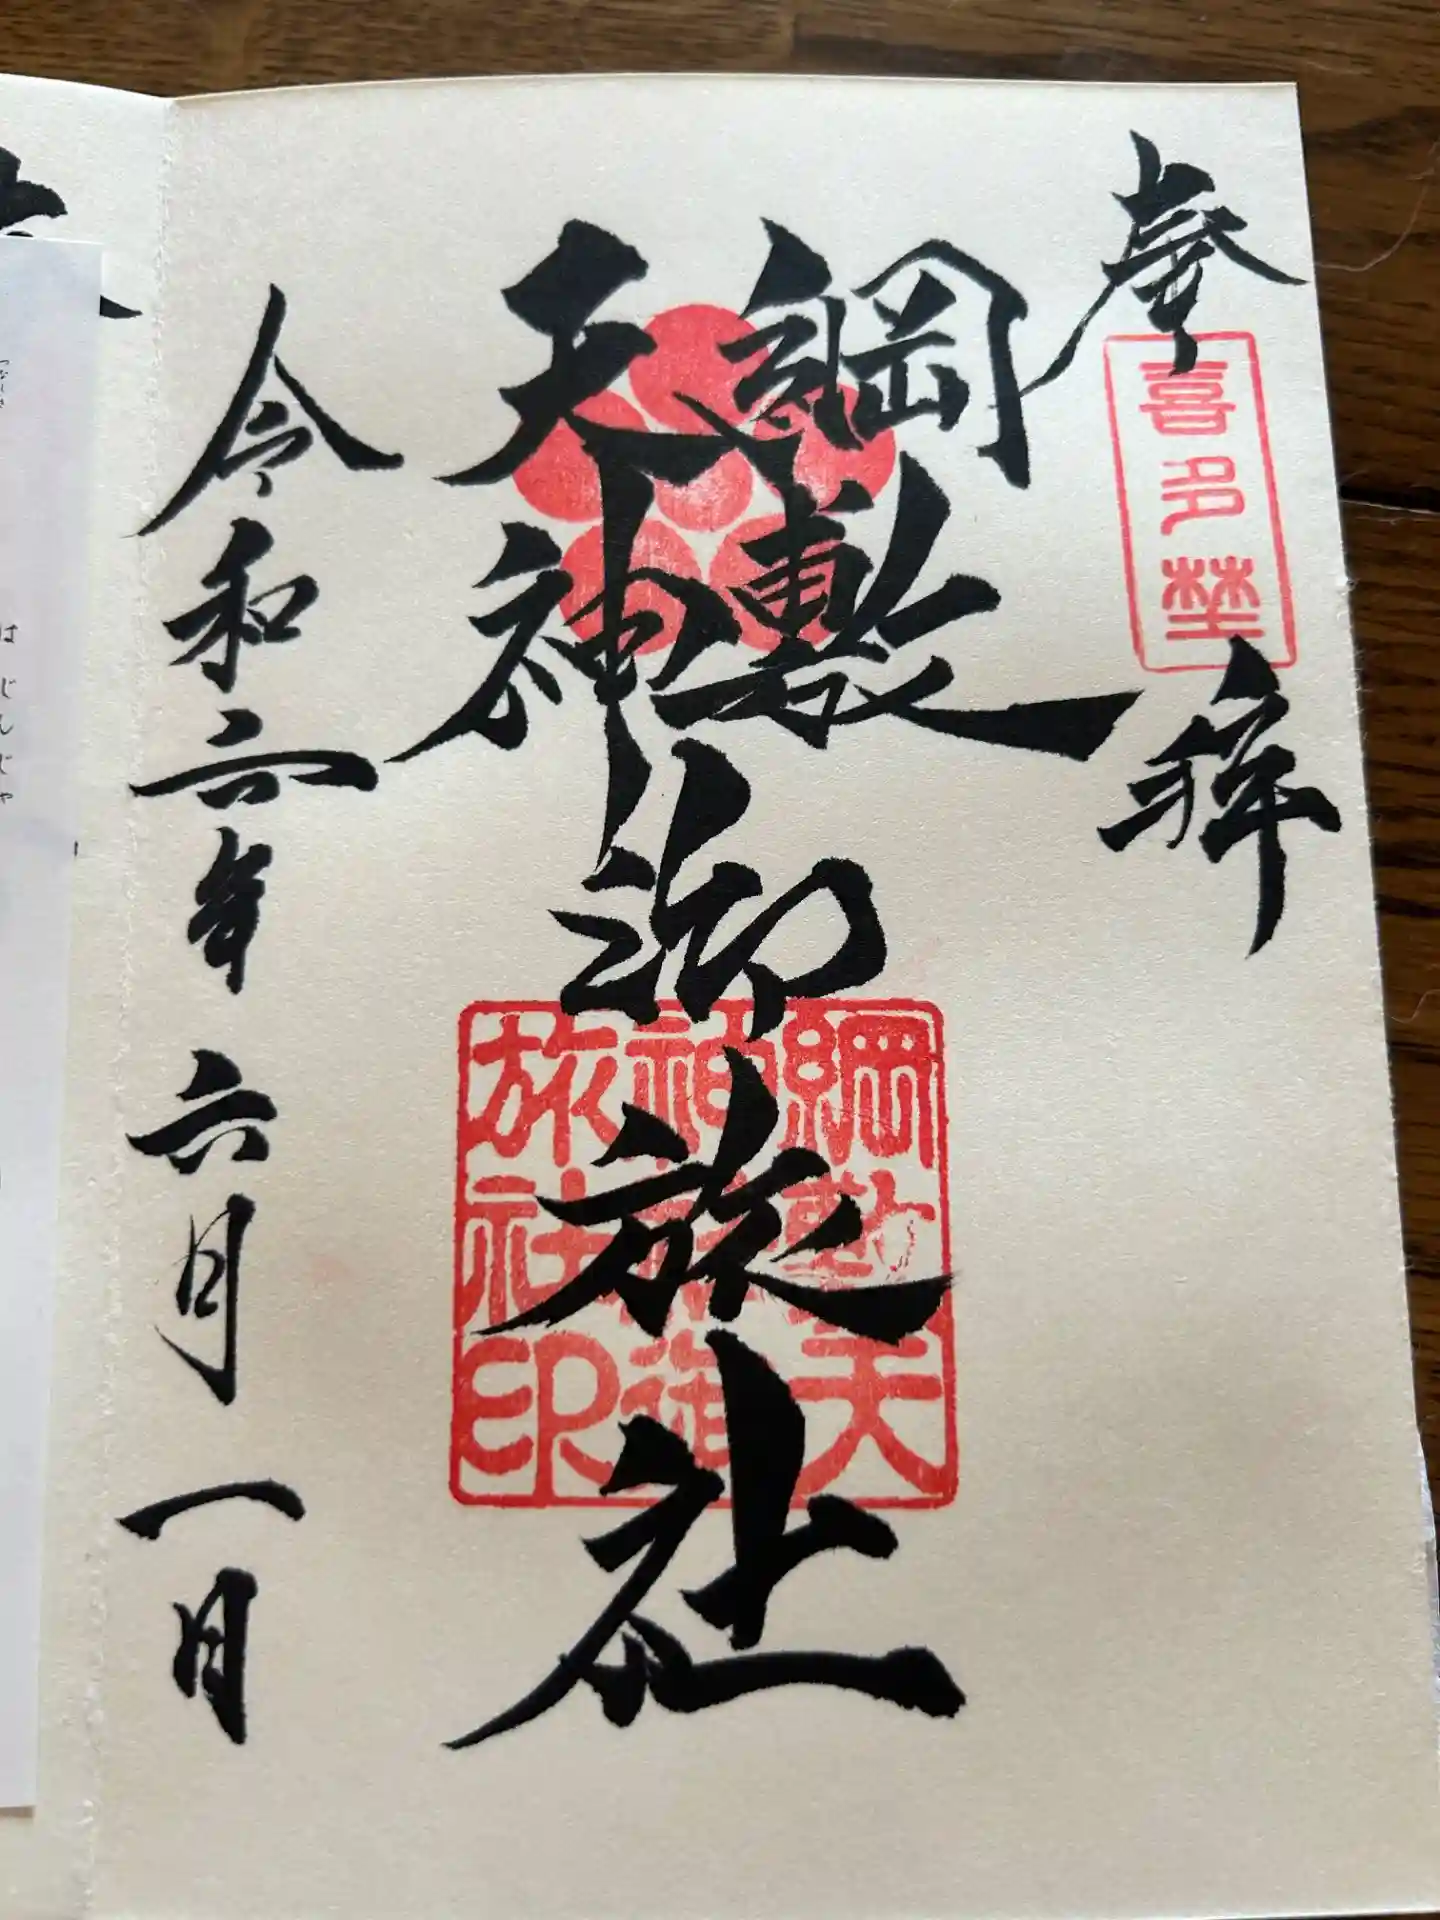 奉拝
喜多埜
綱敷
天神
御旅社
綱敷天
神社御
旅社印
令和六年六月一日
はじんじゃ